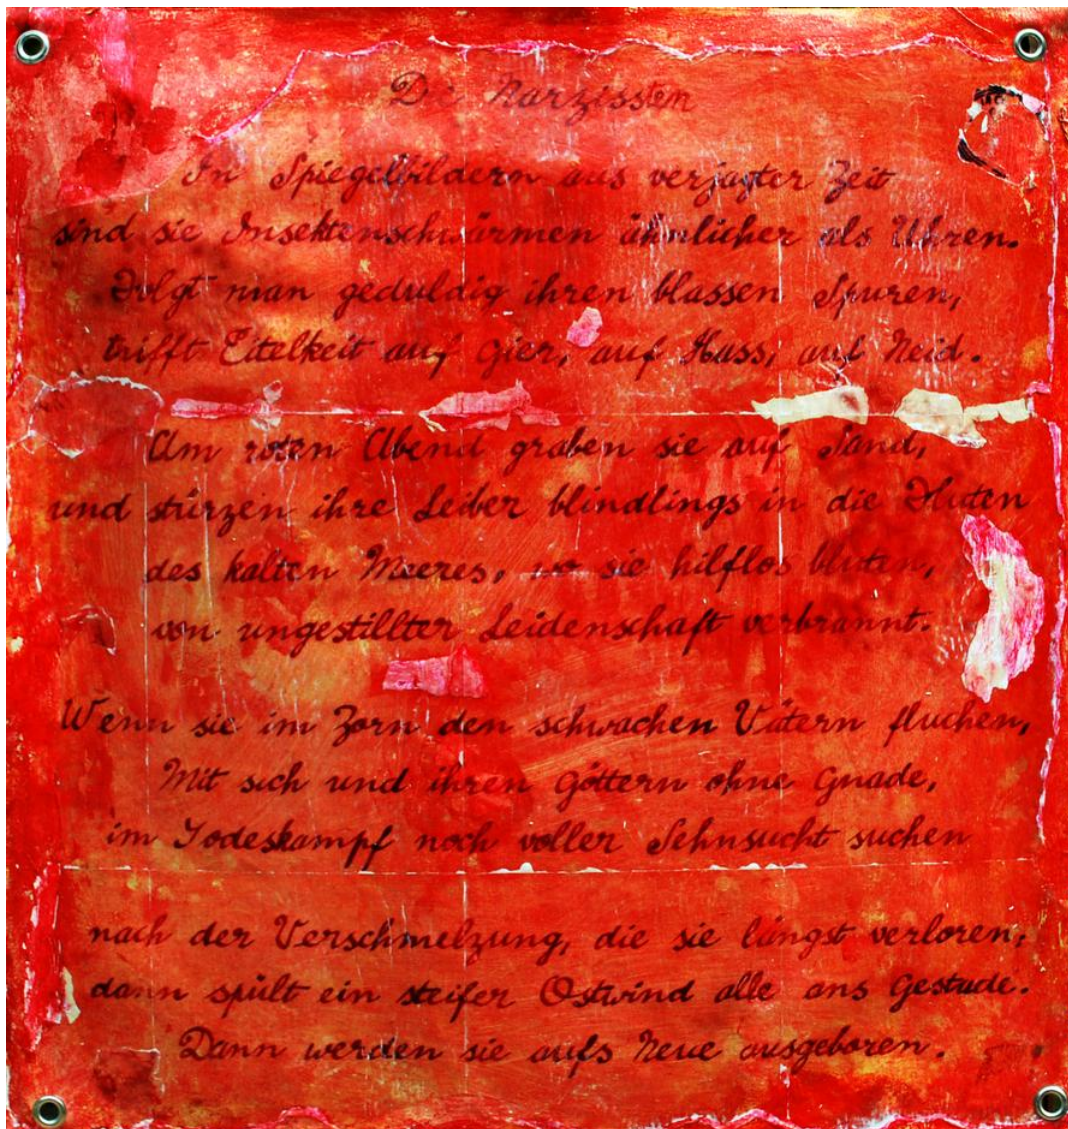 Die Narzissten
In Spiegelbildern aus verjagter Zeit
sind sie Insektenschwärmen ähnlicher als Uhren.
Folgt man geduldig ihren blassen Spuren,
trifft Eitelkeit auf Gier, auf Hass, auf Neid.
Am roten Abend graben sie auf Sand,
und stürzen ihre Leiber blindlings in die Fluten
des kalten Meeres, wo sie hilflos bluten,
von ungestillter Leidenschaft verbrannt.
Wenn sie im Zorn den schwachen Vätern fluchen,
Mit sich und ihren Göttern ohne Gnade,
im Todeskampf noch voller Sehnsucht suchen
nach der Verschmelzung, die sie längst verloren,
dann spült ein steifer Ostwind alle ans Gestade.
Dann werden sie aufs Neue ausgeboren.